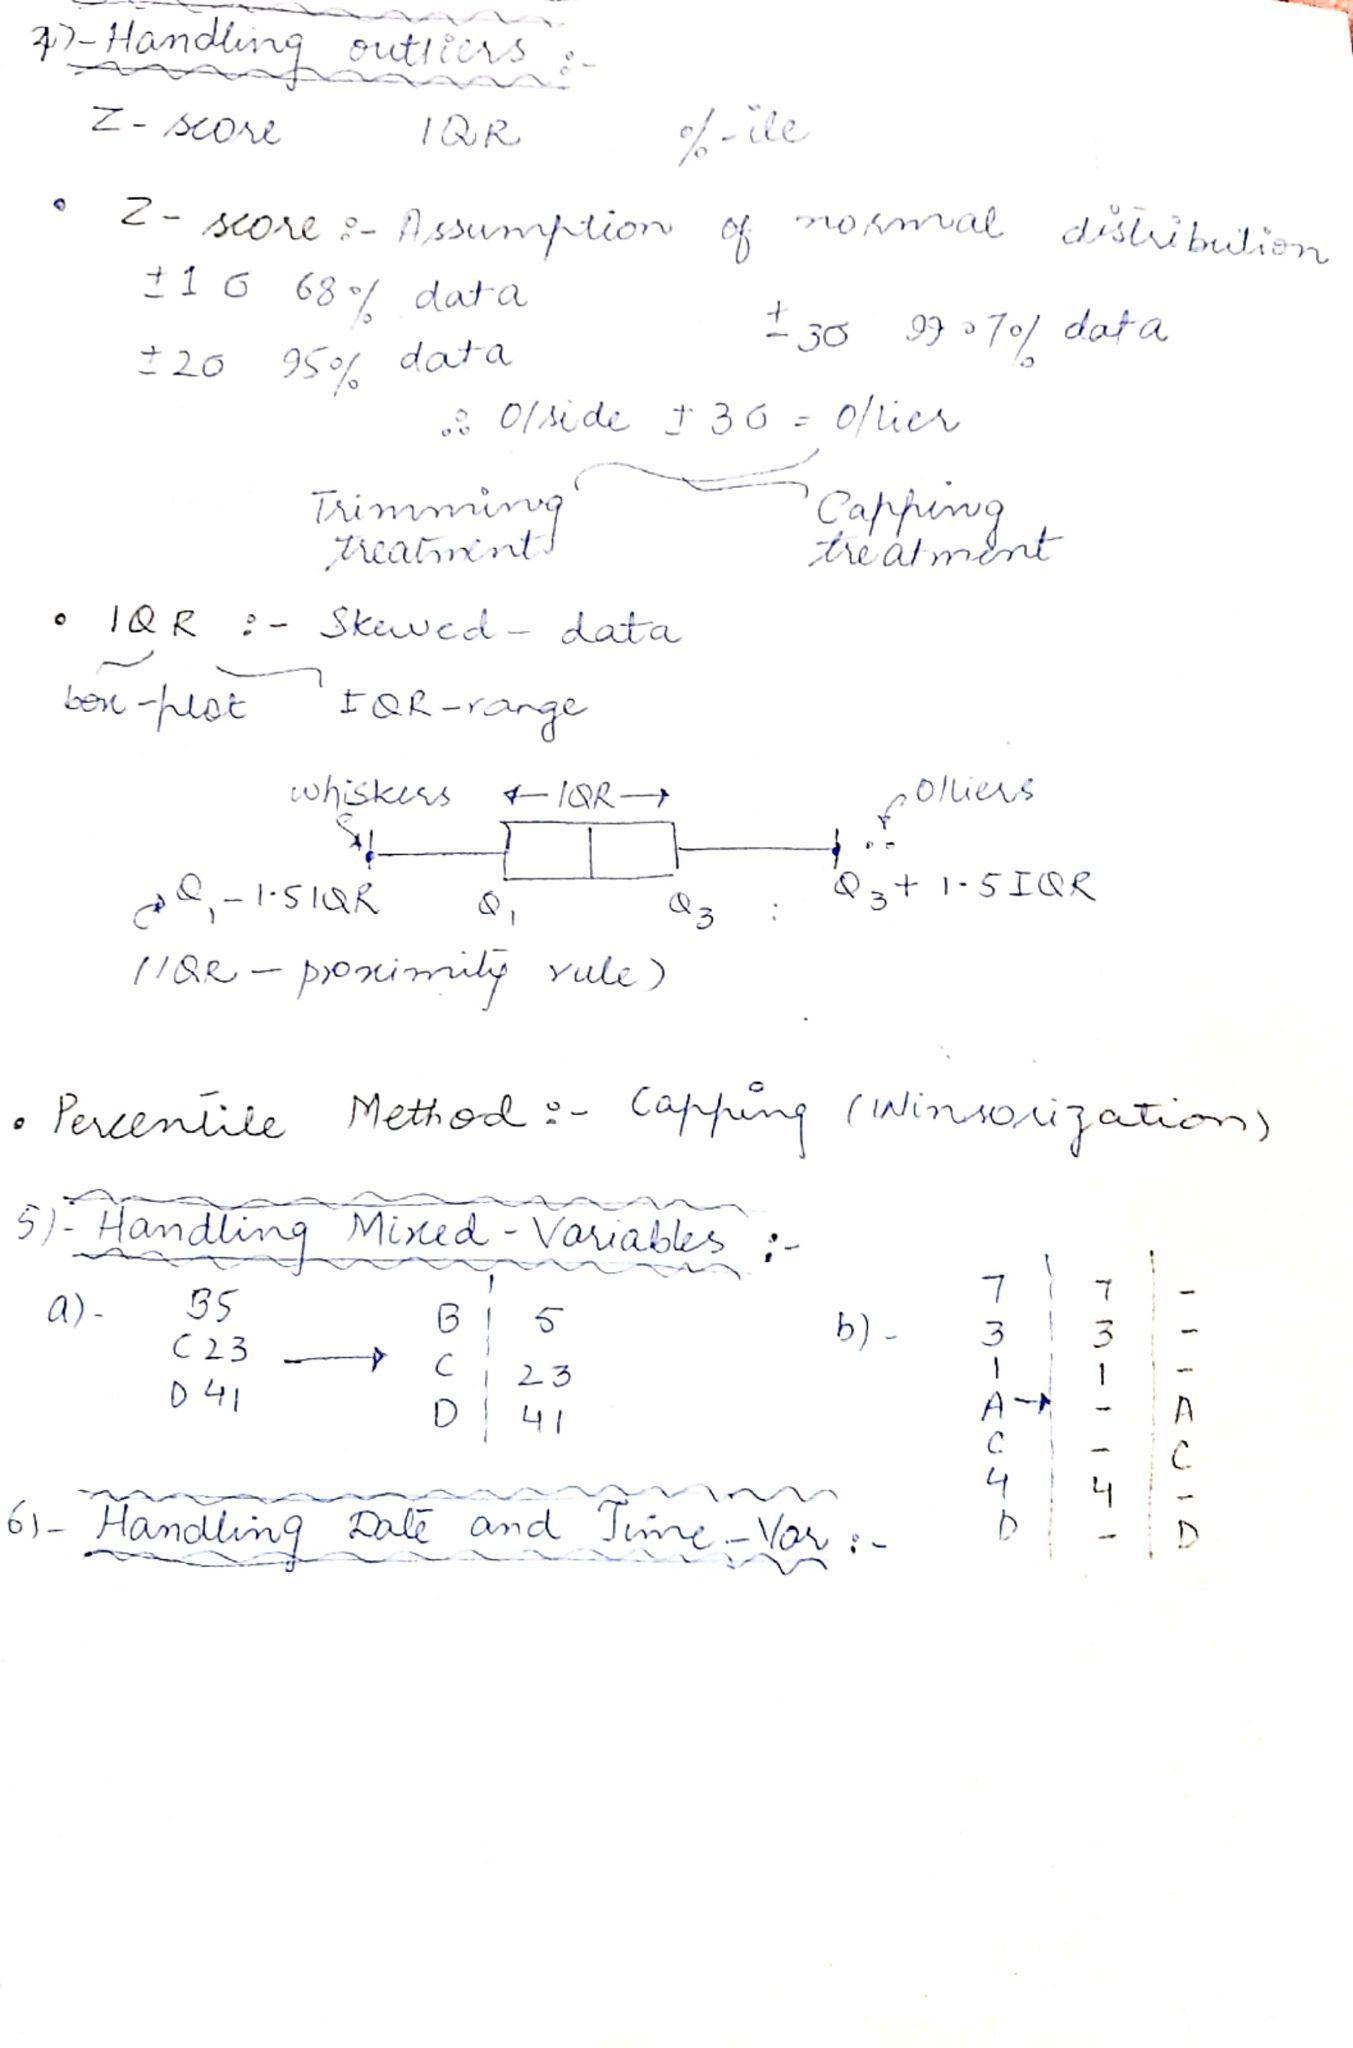 4)- Handling outliers :-
Z-score IQR %-ile
• Z-score :- Assumption of normal distribution
±1σ 68% data
±3σ 99.7% data
±2σ 95% data
∴ O/side ±3σ = O/lier
Trimming treatment Capping treatment
• IQR :- Skewed-data
box-plot IQR-range
whiskers ←IQR→ O/liers
Q1-1.5IQR Q1 Q3 Q3+1.5IQR
(IQR-proximity rule)
• Percentile Method :- Capping (Winsorization)
5)- Handling Mixed-Variables :-
a)- B5 B | 5
C23 → C | 23
D41 D | 41
b)- 7 | 7 | -
3 | 3 | -
1 | 1 | -
A→ | - | A
C | - | C
4 | 4 | -
D | - | D
6)- Handling Date and Time-Var :-